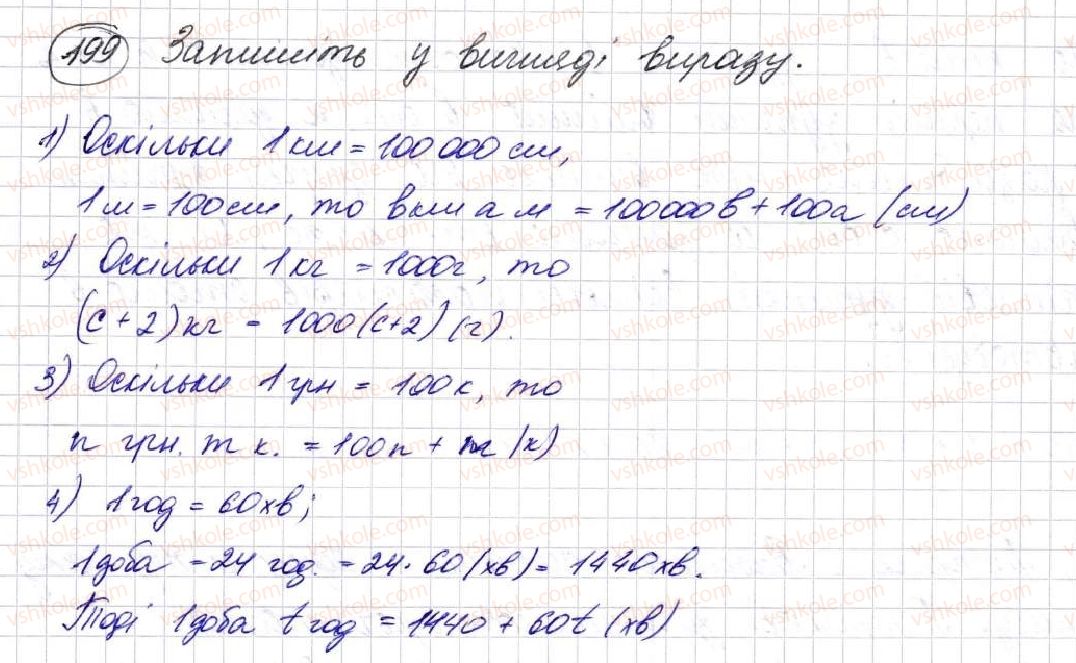 199 Запишіть у вигляді виразу.
1) Оскільки 1 км = 100 000 см,
1 м = 100 см, то в км а м = 100000в + 100а (см)
2) Оскільки 1 кг = 1000г, то
(с + 2) кг = 1000(с+2) (г).
3) Оскільки 1 грн = 100 к, то
n грн. m к. = 100n + m (к)
4) 1 год = 60 хв;
1 доба = 24 год. = 24 · 60 (хв) = 1440 хв.
Тоді 1 доба t год = 1440 + 60t (хв)
vshkole.com